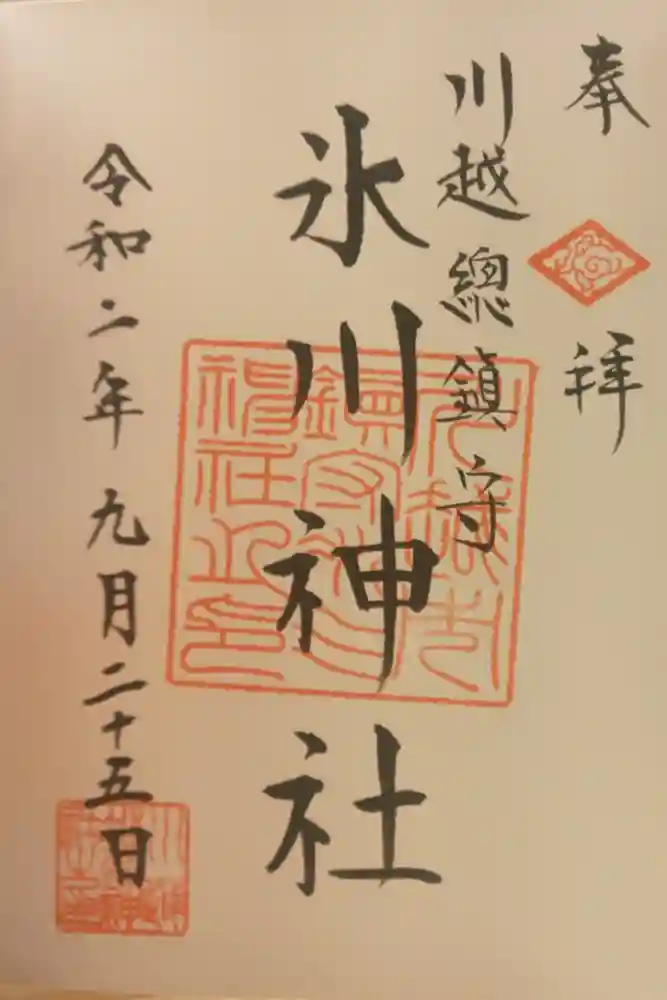 奉拝
川越總鎮守
氷川神社
令和二年九月二十五日